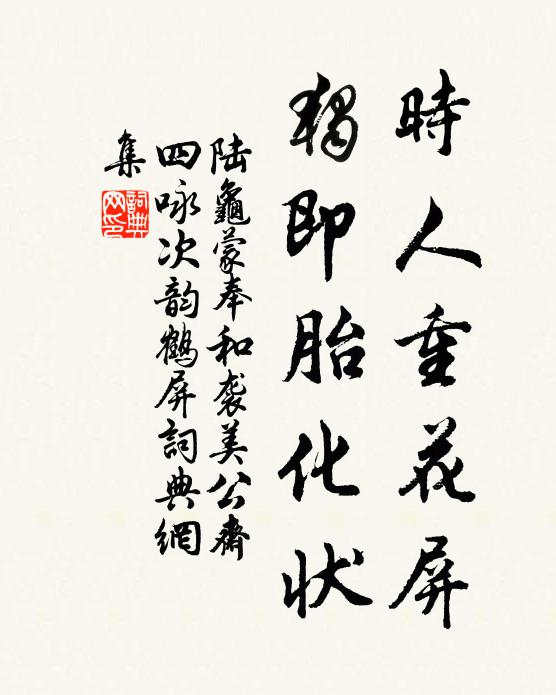 時人重花屏
獨即胎化状
陆龜蒙奉和袭美公齋
四咏次韵鹤屏詞典網
集
詞典网印